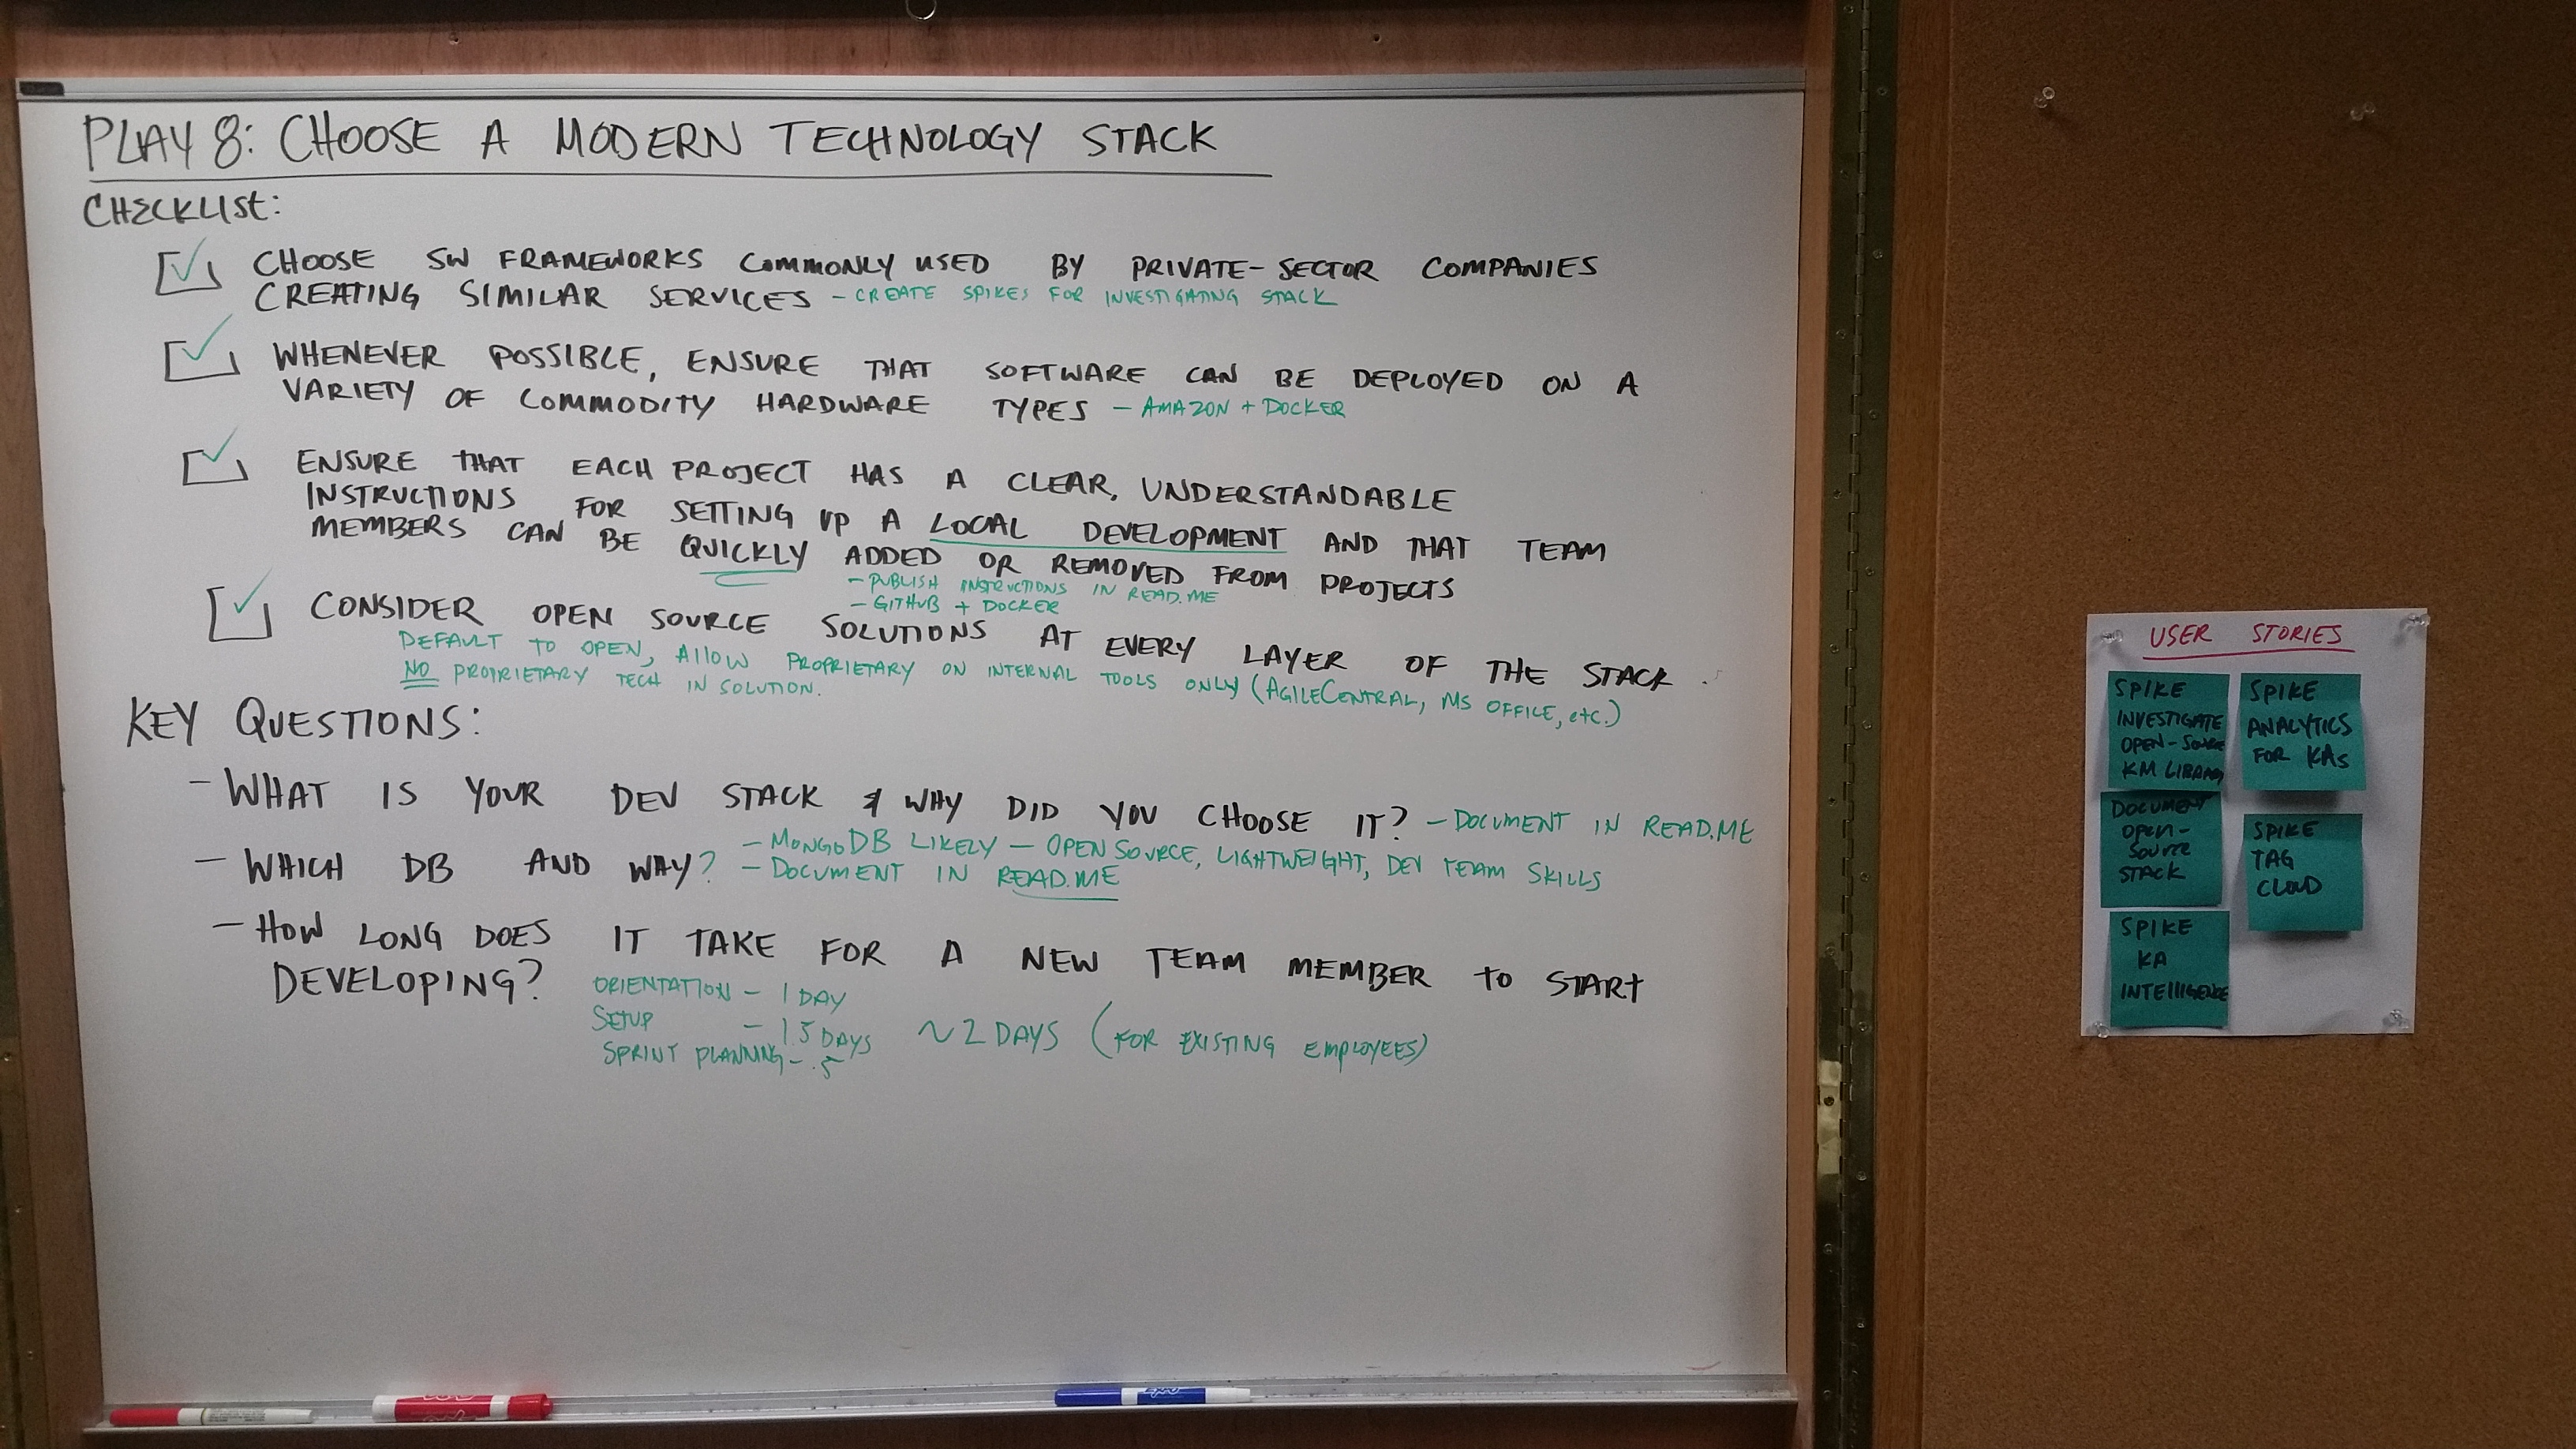 PLAY 8: CHOOSE A MODERN TECHNOLOGY STACK
CHECKLIST:
CHOOSE SW FRAMEWORKS COMMONLY USED BY PRIVATE-SECTOR COMPANIES
CREATING SIMILAR SERVICES - CREATE SPIKES FOR INVESTIGATING STACK
WHENEVER POSSIBLE, ENSURE THAT SOFTWARE CAN BE DEPLOYED ON A
VARIETY OF COMMODITY HARDWARE TYPES - AMAZON + DOCKER
ENSURE THAT EACH PROJECT HAS A CLEAR, UNDERSTANDABLE
INSTRUCTIONS FOR SETTING UP A LOCAL DEVELOPMENT AND THAT TEAM
MEMBERS CAN BE QUICKLY ADDED OR REMOVED FROM PROJECTS
- PUBLISH INSTRUCTIONS IN READ.ME
- GITHUB + DOCKER
CONSIDER OPEN SOURCE SOLUTIONS AT EVERY LAYER OF THE STACK.
DEFAULT TO OPEN, ALLOW PROPRIETARY ON INTERNAL TOOLS ONLY (AGILECENTRAL, MS OFFICE, etc.)
NO PROPRIETARY TECH IN SOLUTION.
KEY QUESTIONS:
- WHAT IS YOUR DEV STACK & WHY DID YOU CHOOSE IT? - DOCUMENT IN READ.ME
- WHICH DB AND WHY? - MONGODB LIKELY - OPEN SOURCE, LIGHTWEIGHT, DEV TEAM SKILLS
- DOCUMENT IN READ.ME
- HOW LONG DOES IT TAKE FOR A NEW TEAM MEMBER TO START
DEVELOPING?
ORIENTATION - 1 DAY
SETUP - 1.5 DAYS ~2 DAYS (FOR EXISTING EMPLOYEES)
SPRINT PLANNING - .5
EXPO
USER STORIES
SPIKE
INVESTIGATE
OPEN-SOURCE
KM LIBRARY
SPIKE
ANALYTICS
FOR KAs
DOCUMENT
OPEN-
SOURCE
STACK
SPIKE
TAG
CLOUD
SPIKE
KA
INTELLIGENCE